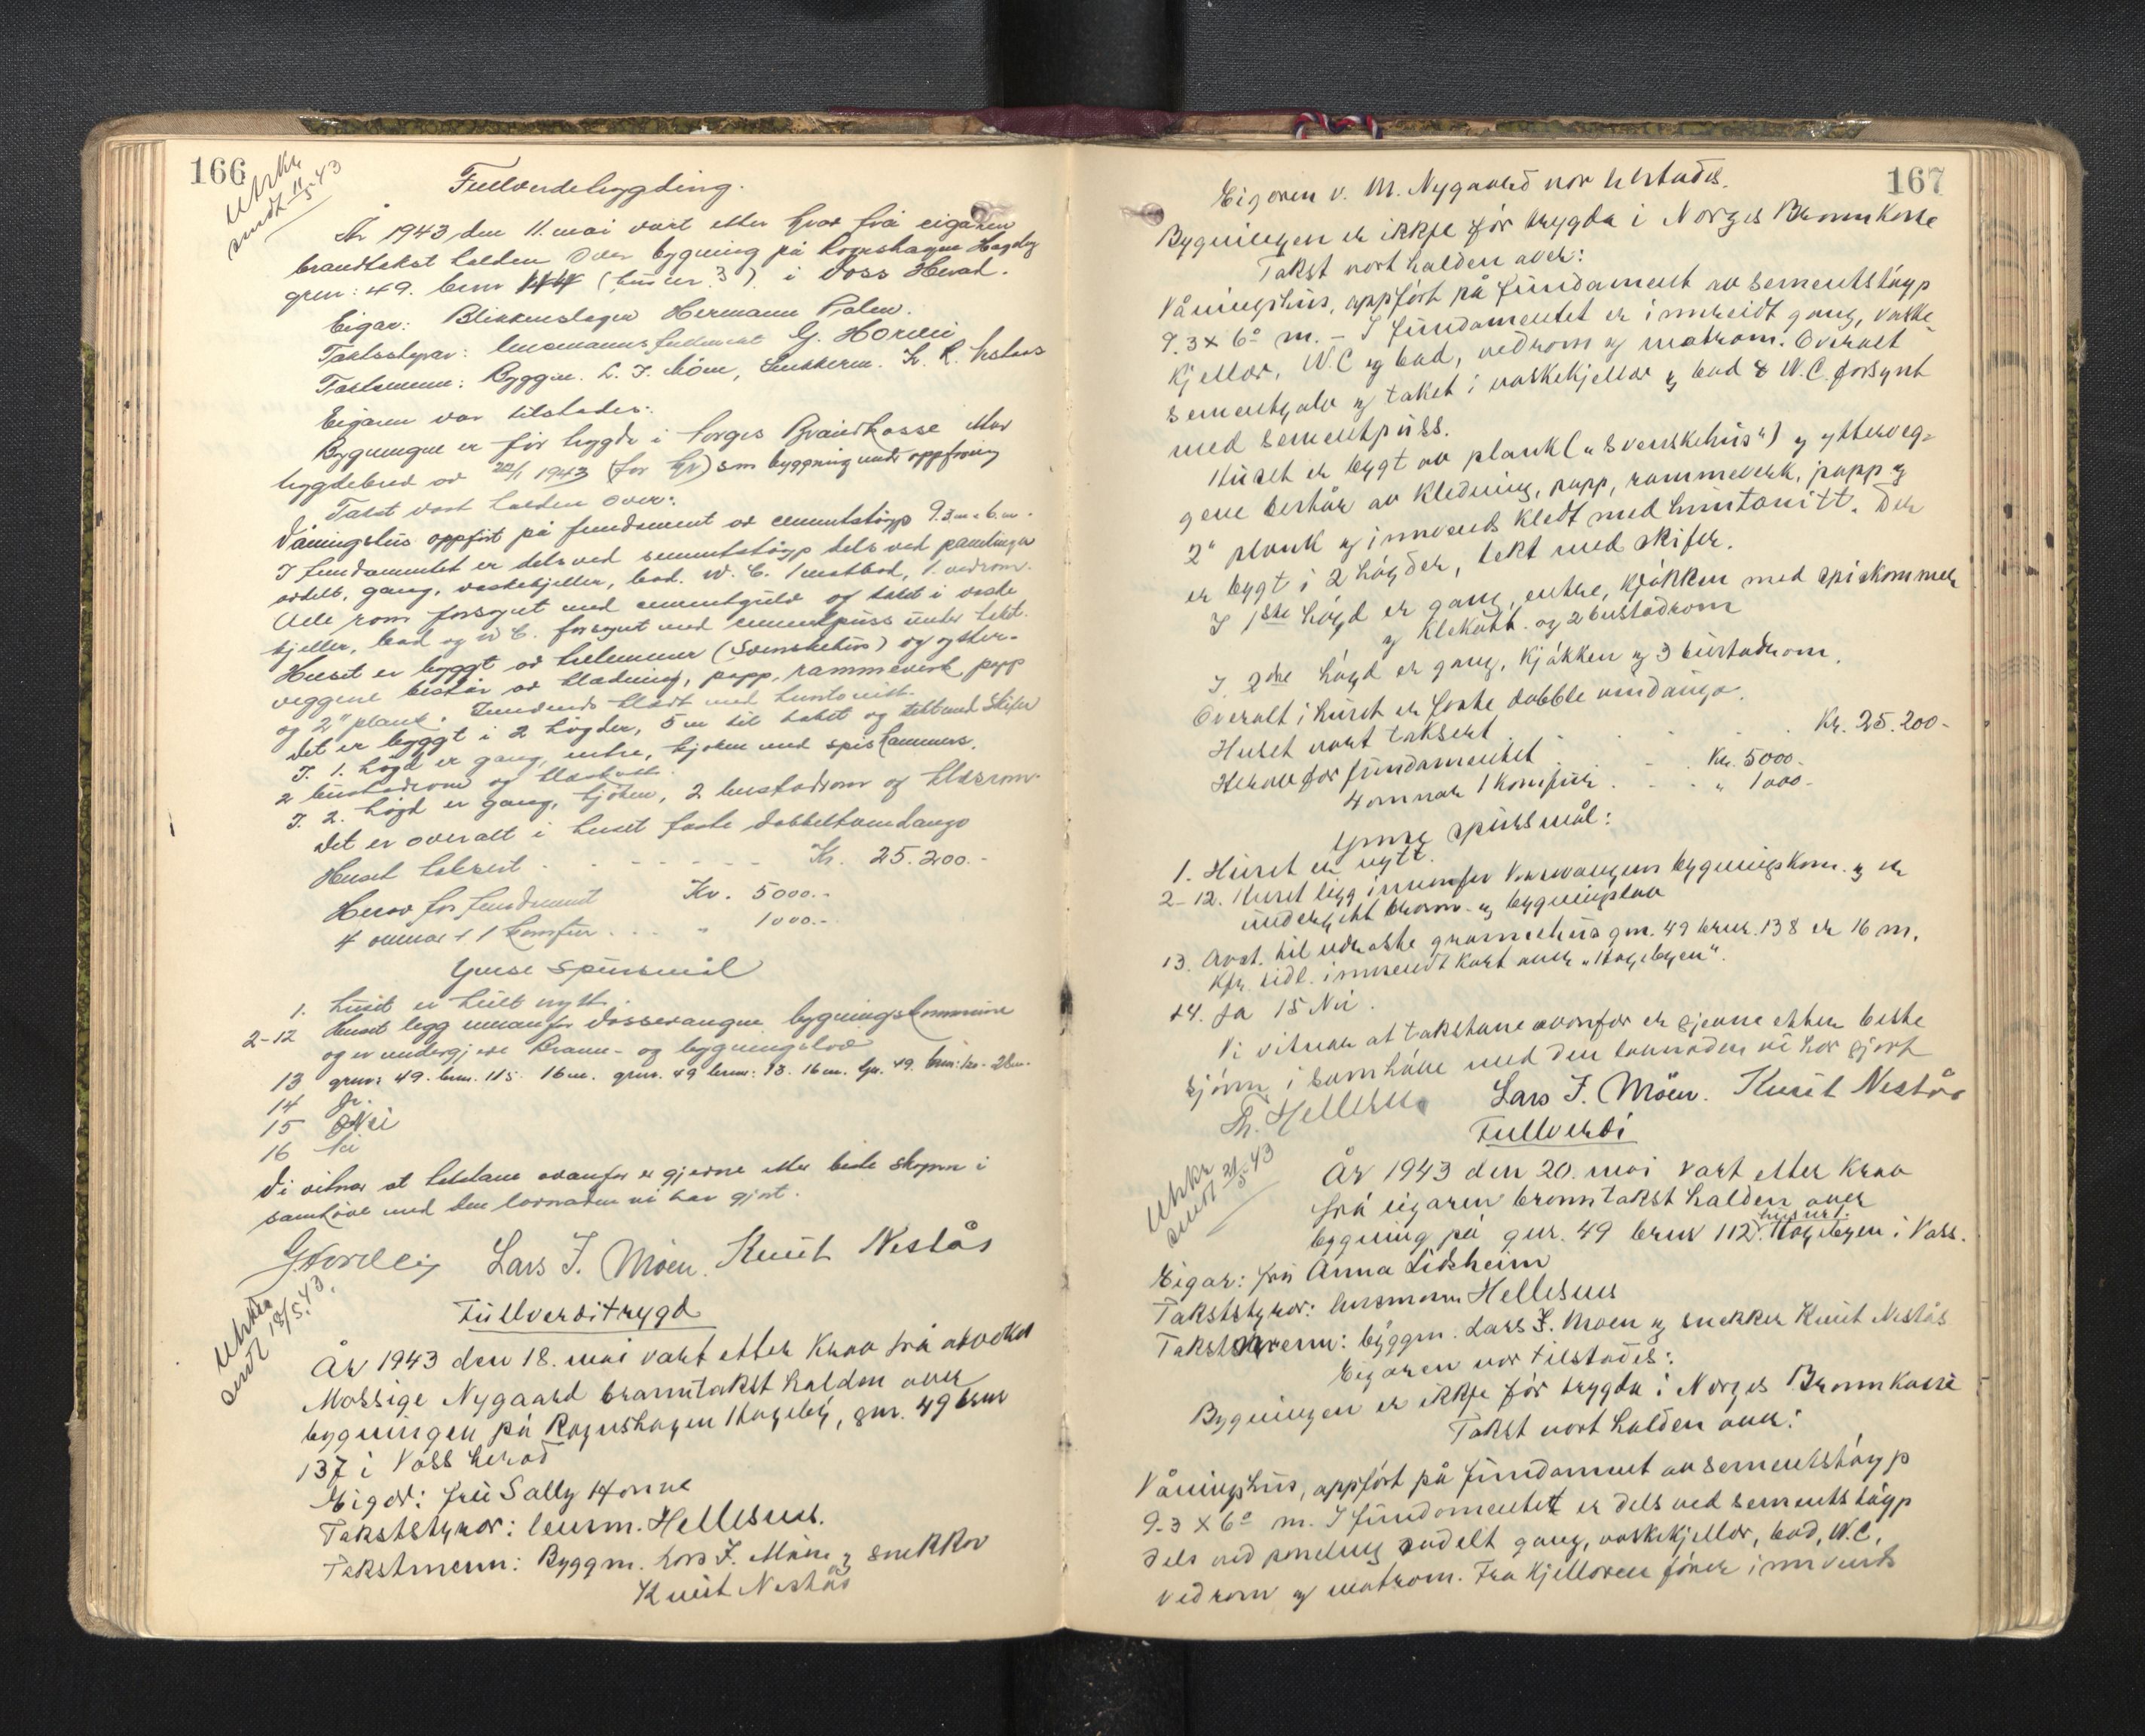 166
Utskr.
sendt 11/5 43
Fullverdetrygding.
År 1943 den 11. mai vart etter krav frå eigaren
brandtakst halden over bygning på Rognshagen Hageby
grnr: 49. brnr (husnr 3) i Voss Herad.
Eigar: Blikkenslager Hermann
Takststyrar: lensmannsfullmekt. G. Horvei
Takstmenn: Byggm. L. J. Möen, Snikkerm. K. K. Nestaas
Eigaren var tilstades:
Bygningen er för trygda i Norges Brandkasse
trygdebrev av 22/1 1943 (for kr) som byggning under oppföring
Takst vart halden over:
Våningshus oppfört på fundament av cementstöyp 9.3 m x 6 m.
I fundamentet er dels ved sementstöyp dels ved panelingar
avdelt, gang, vaskekjeller, bad. W. C. 1 matbod, 1. vedrom.
Alle rom forsynt med cementgulv og taket i vaske
kjeller, bad og W C. forsynt med cementpuss under taket.
Huset er byggt av (Svenskehus) og ytter-
veggene består av klædning, papp, rammeverk papp
og 2" plank. Innvends klædt med huntonitt.
Det er byggt i 2 högder, 5 m til taket og tekt med skifer
I. 1. högd er gang, entre, kjöken med spiskammers.
2 bustadrom og klæskott.
I. 2. högd er gang, kjöken, 2 bustadrom og klæsrom.
Det er overalt i huset faste dobbeltvindauga
Huset taksert . . . . . . . Kr. 25.200.-
Herav for fundament Kr. 5000.-
4 omnar + 1 komfur . . . „ 1000.-
Ymse spursmål
1. Huset er heilt nytt.
2-12 Huset ligg innanfor Vossevangen bygningskommune
og er undergjeve brann- og bygningslov
13 grnr: 49. brnr. 115. 16 m. grnr. 49 brnr: 13. 16 m. Gr. 49. brnr: 120 - 28 m.
14 Ja.
15 Nei
16 Nei
Vi vitnar at takstane ovanfor er gjevne etter beste skjönn i
samhöve med den lovnaden vi har gjort.
G Horvei Lars J. Möen. Knut Nestås
Utskr.
sendt 18/5. 43.
Fullverditrygd
År 1943 den 18. mai vart etter krav frå advokat
Massige Nygaard branntakst halden over
bygningen på Rognshagen Hageby, gnr. 49 brnr
137 i Voss herad
Eigar: fru Sally Horne
Takststyrar: lensm. Hellesnes.
Takstmenn: Byggm. Lars J. Möen og snekkar
Knut Nestås
167
Eigaren v. M. Nygaard var tilstades.
Bygningen er ikkje för trygda i Norges Brannkasse
Takst vart halden over:
Våningshus, oppfört på fundament av sementstöyp
9.3 x 6⁰ m. - I fundamentet er innreidt gang, vaske-
kjellar, W.C og bad, vedrom og matrom. Overalt
sementgolv og taket i vaskekjellar og bad & W.C. forsynt
med sementpuss.
Huset er bygt av plank („svenskehus") og ytterveg-
gene består av kledning, papp, rammeverk, papp og
2" plank og innvends kledt med huntonitt. Det
er bygt i 2 högder, tekt med skifer.
I 1ste högd er gang, entre, kjökken med spiskammer
og klekott. og 2 bustadrom
I. 2dre högd er gang, kjökken og 3 bustadrom.
Overalt i huset er faste dobble vindauga.
Huset vart taksert . . . . . . Kr. 25.200-
Herav for fundamentet . . . Kr. 5000.-
4 omnar 1 komfur . . . „ 1000-
Ymse spursmål:
1. Huset er nytt.
2-12. Huset ligg innanfor Vossevangens bygningskom. og er
undergjeve brann- og bygningslov
13. Avst. til næraste grannehus gnr. 49 brnr. 138 er 16 m.
Kfr. tidl. innsendt kart over „Hagebyen".
14. Ja 15 Nei.
Vi vitnar at takstane ovanfor er gjevne etter beste
skjönn i samhöve med den lovnaden vi har gjort
Th. Hellesnes Lars J. Möen. Knut Nestås
Fullverdi
Utskr.
sendt 21/5 43
År 1943 den 20. mai vart etter krav
frå eigaren branntakst halden over
bygning på gnr. 49 brnr 112 husnr 1. Hagebyen i Voss.
Eigar: fru Anna Lidsheim
Takststyrar: lensmann Hellesnes
Takstmenn: byggm. Lars J. Moen og snekker Knut Nestås
Eigaren var tilstades:
Bygningen er ikkje för trygda i Norges Brannkasse
Takst vart halden over:
Våningshus, oppfört på fundament av sementstöyp
9.3 x 6⁰ m. I fundamentet er dels ved sementstöyp
dels ved paneling avdelt gang, vaskekjellar, bad, W.C.,
vedrom og matrom. Fra kjellaren förer innvends